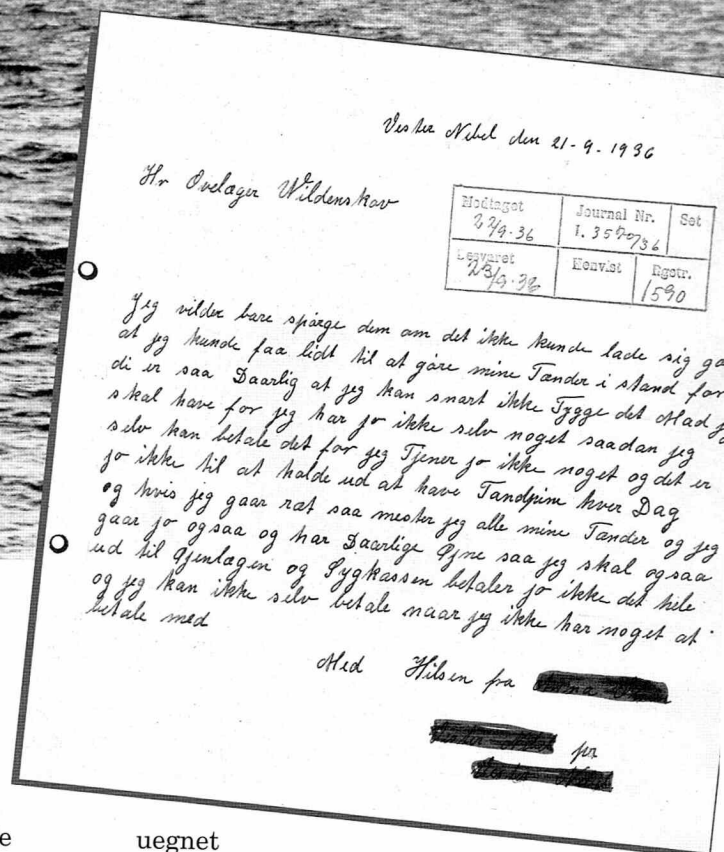 Vester Nebel den 21-9-1936
Hr Ovelæger Wildenskov
Modtaget Journal Nr. Set
22/9-36 1.3570/36
Besvaret Henvist Rgstr.
23/9-36 1590
Jeg vilder bare spørge dem om det ikke kunde lade sig gø
at jeg kunde faa lidt til at gøre mine Tænder i stand for
di er saa Daarlig at jeg kan snart ikke Tygge det Mad j
skal have for jeg har jo ikke selv noget saadan jeg
selv kan betale det for jeg Tjener jo ikke noget og det er
jo ikke til at holde ud at have Tandpine hver Dag
og hvis jeg gaar ræt saa mester jeg alle mine Tænder og jeg
gaar jo ogsaa og har Daarlige Øjne saa jeg skal ogsaa
ud til Øjenlægen og Sygkassen betaler jo ikke det hele
og jeg kan ikke selv betale naar jeg ikke har noget at
betale med
Med Hilsen fra
pr
e uegnet